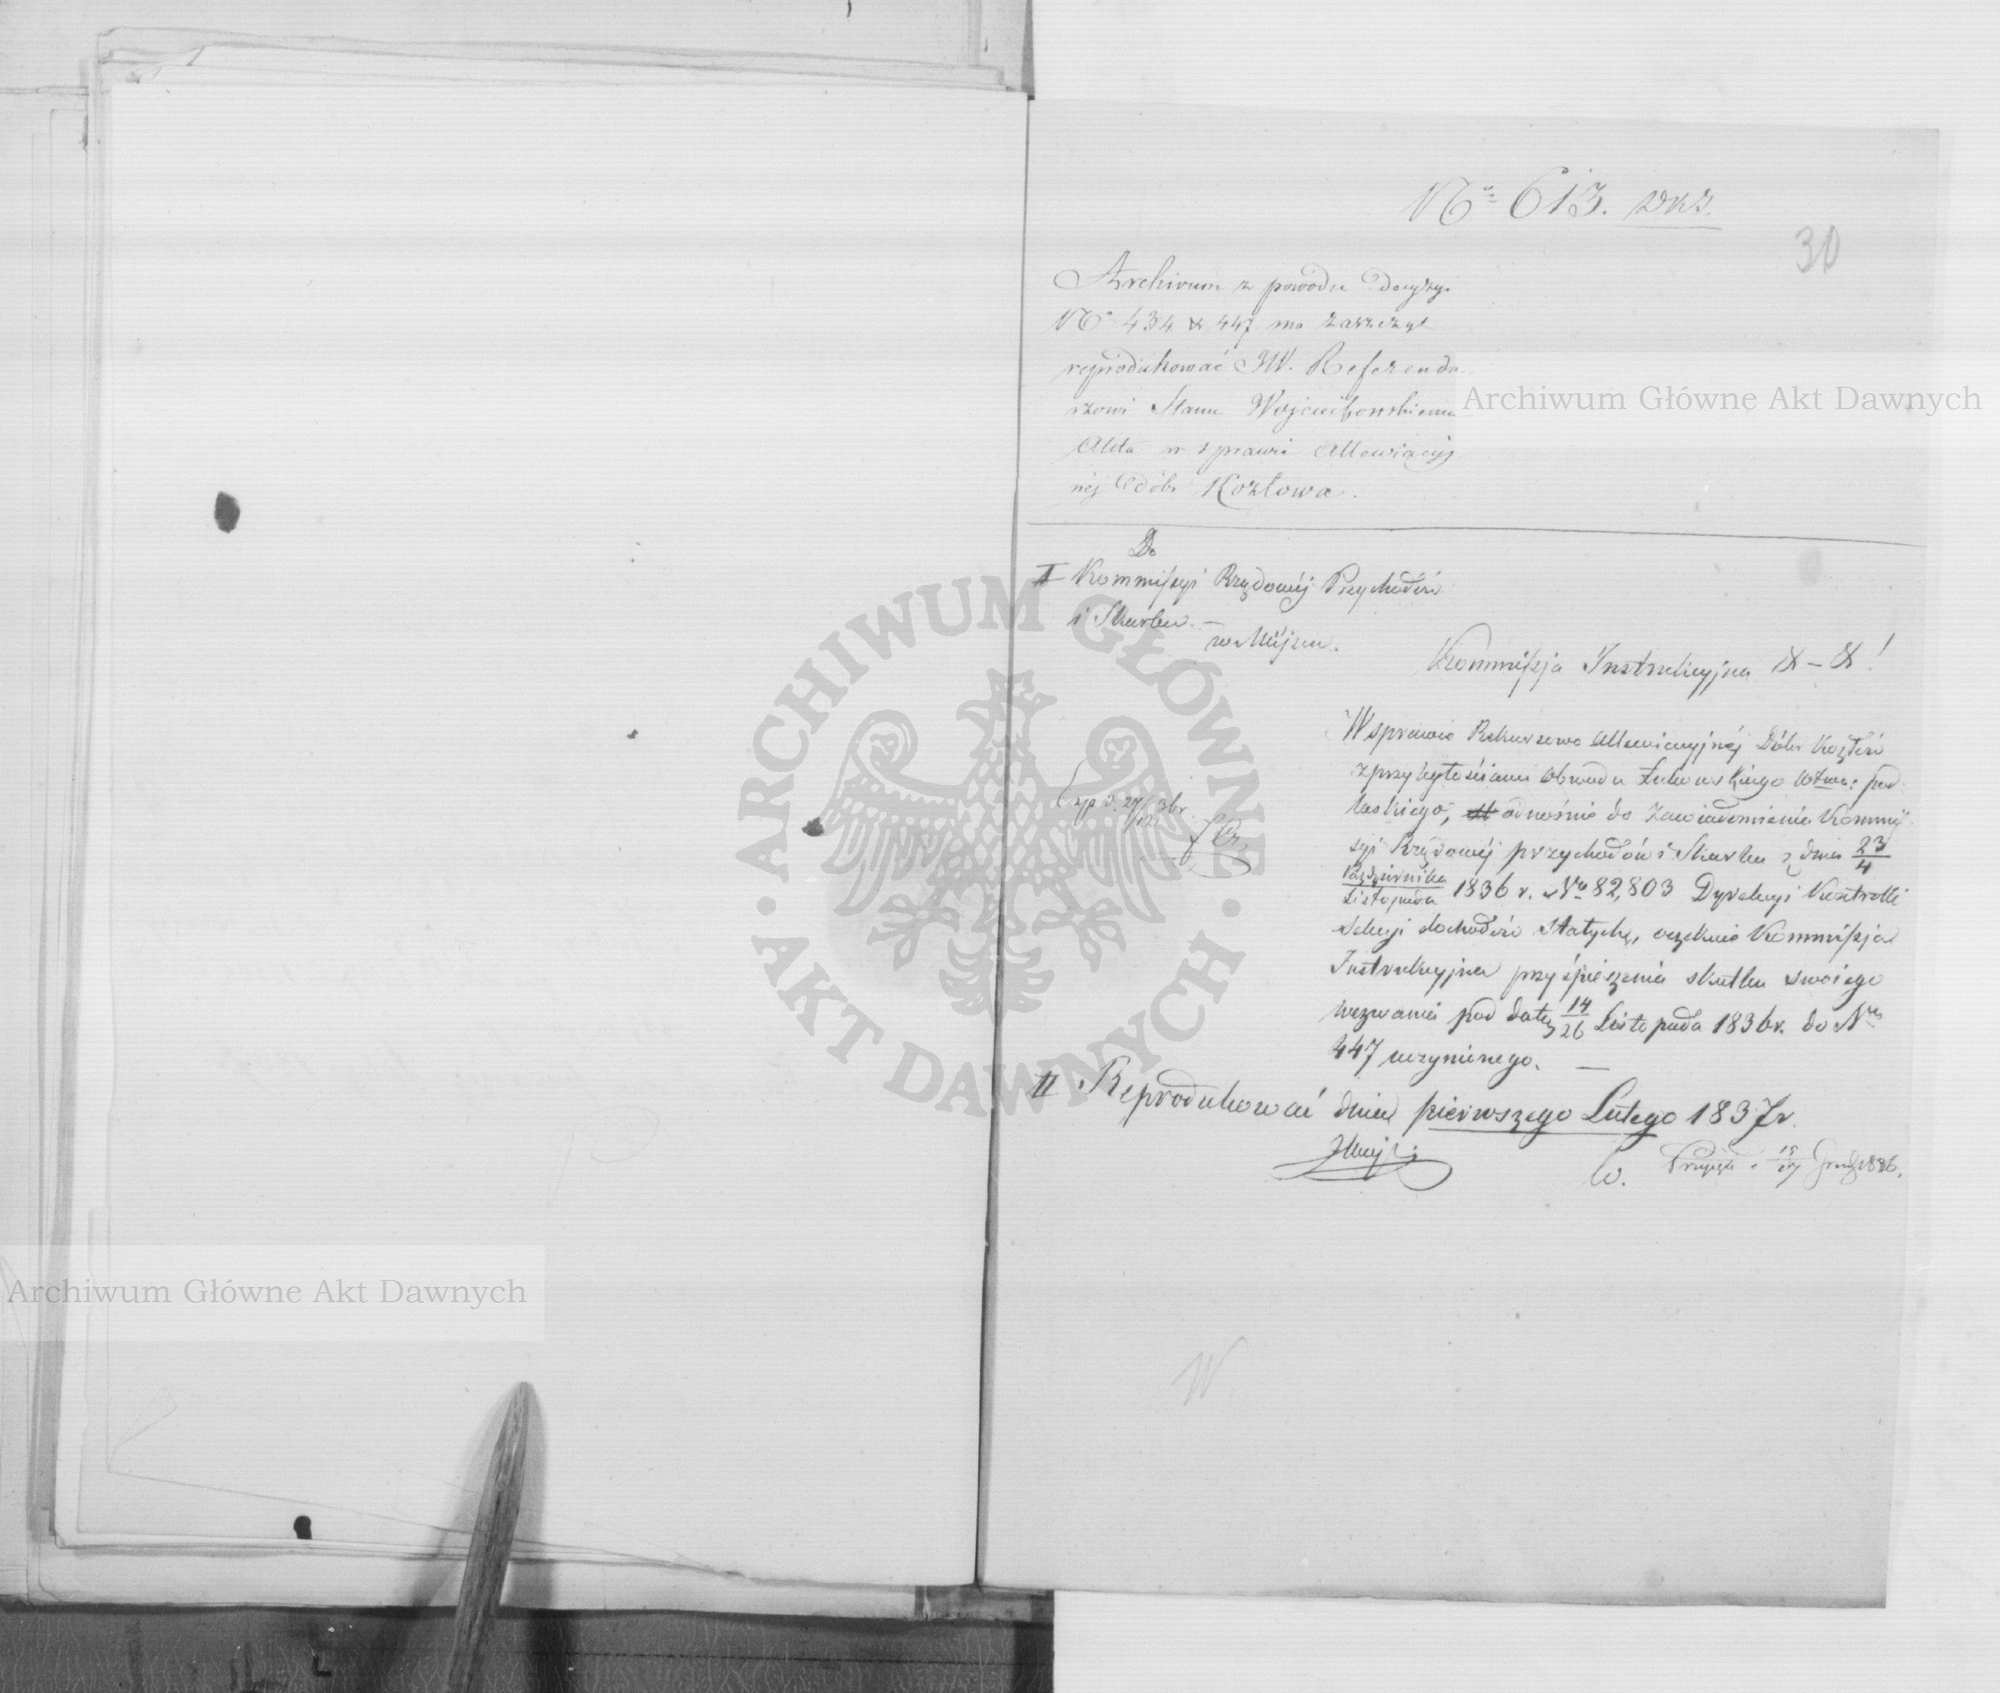 No 613.
30
Archivum z powodu decyzyi
No 434 & 447 ma zaszczyt
reprodukować JW. Referenda
rzowi Stanu Wojciechowskiemu
Akta w sprawie Allewiacyj
nej Dóbr Kozłowa.
Do
I Kommissyi Rządowéj Przychodów
i Skarbu. —
w Miejscu.
Kommissja Instrukcyjna & — &!
W sprawie Rekursowo Allewiacyjnéj Dóbr Kozłów
z przyległościami Obwodu Łukowskiego Wtwa: pod
laskiego, odnośnie do zawiadomienia Kommis
syi Rządowéj przychodów i Skarbu z dnia 23/4
Października/Listopada 1836 r. No 82,803 Dyrekcyi Kontrolli
Sekcyi dochodów Stałych, oczekuie Kommissja
Instrukcyjna przyśpieszenia skutku swoiego
wezwania pod datą 14/26 Listopada 1836 r. do Nru
447 uczynionego. —
Exp d. 27/12
II Reprodukować dnia pierwszego Lutego 1837 r.
W.
15/27 Grud 1836.
W
Archiwum Główne Akt Dawnych
Archiwum Główne Akt Dawnych
ARCHIWUM GŁÓWNE
· AKT DAWNYCH ·